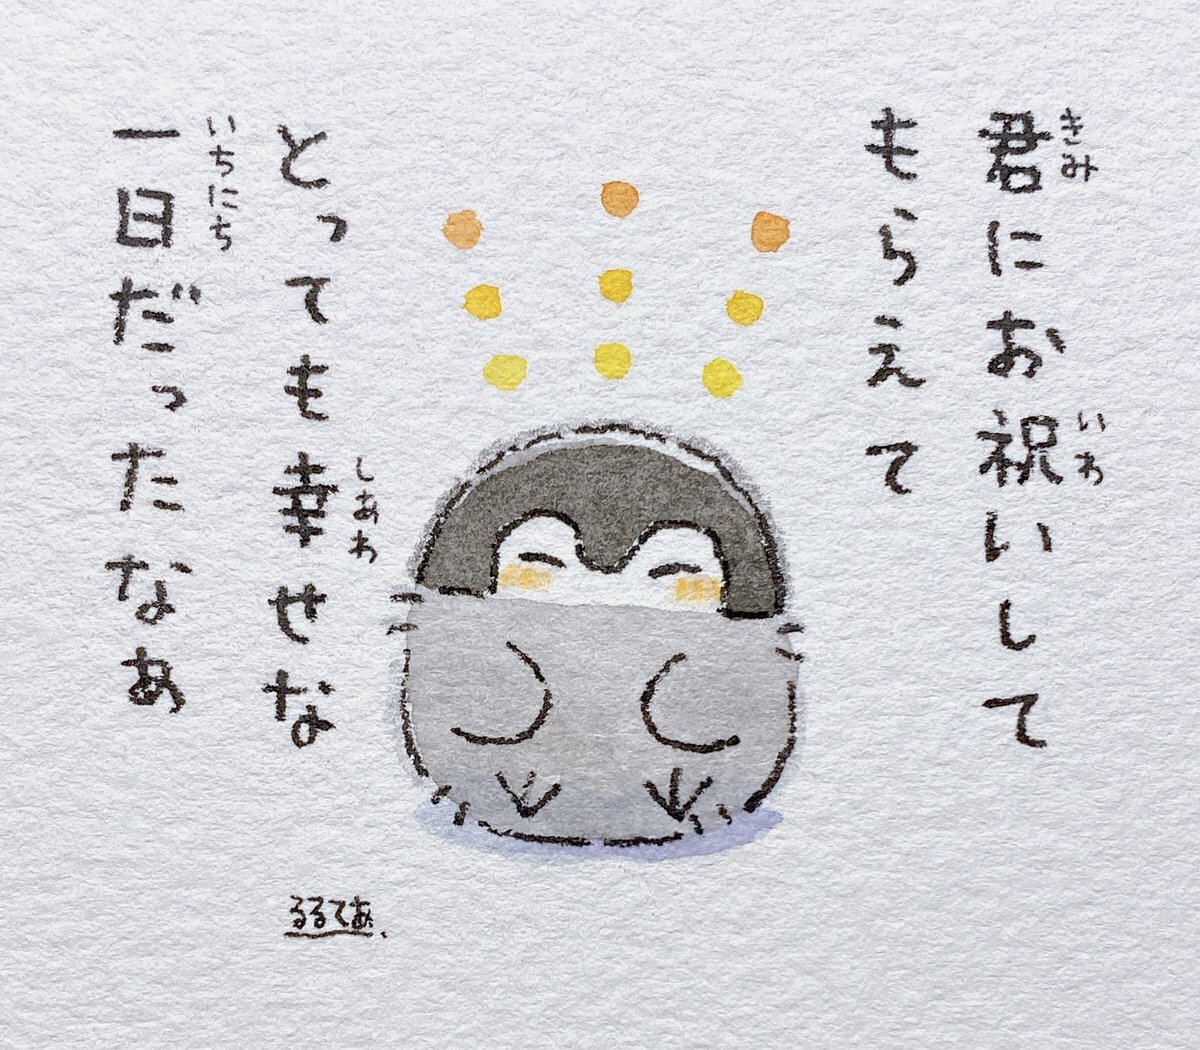 君にお祝いして
きみ
いわ
もらえて
とっても幸せな
しあわ
一日だったなぁ
いちにち
るるてあ.